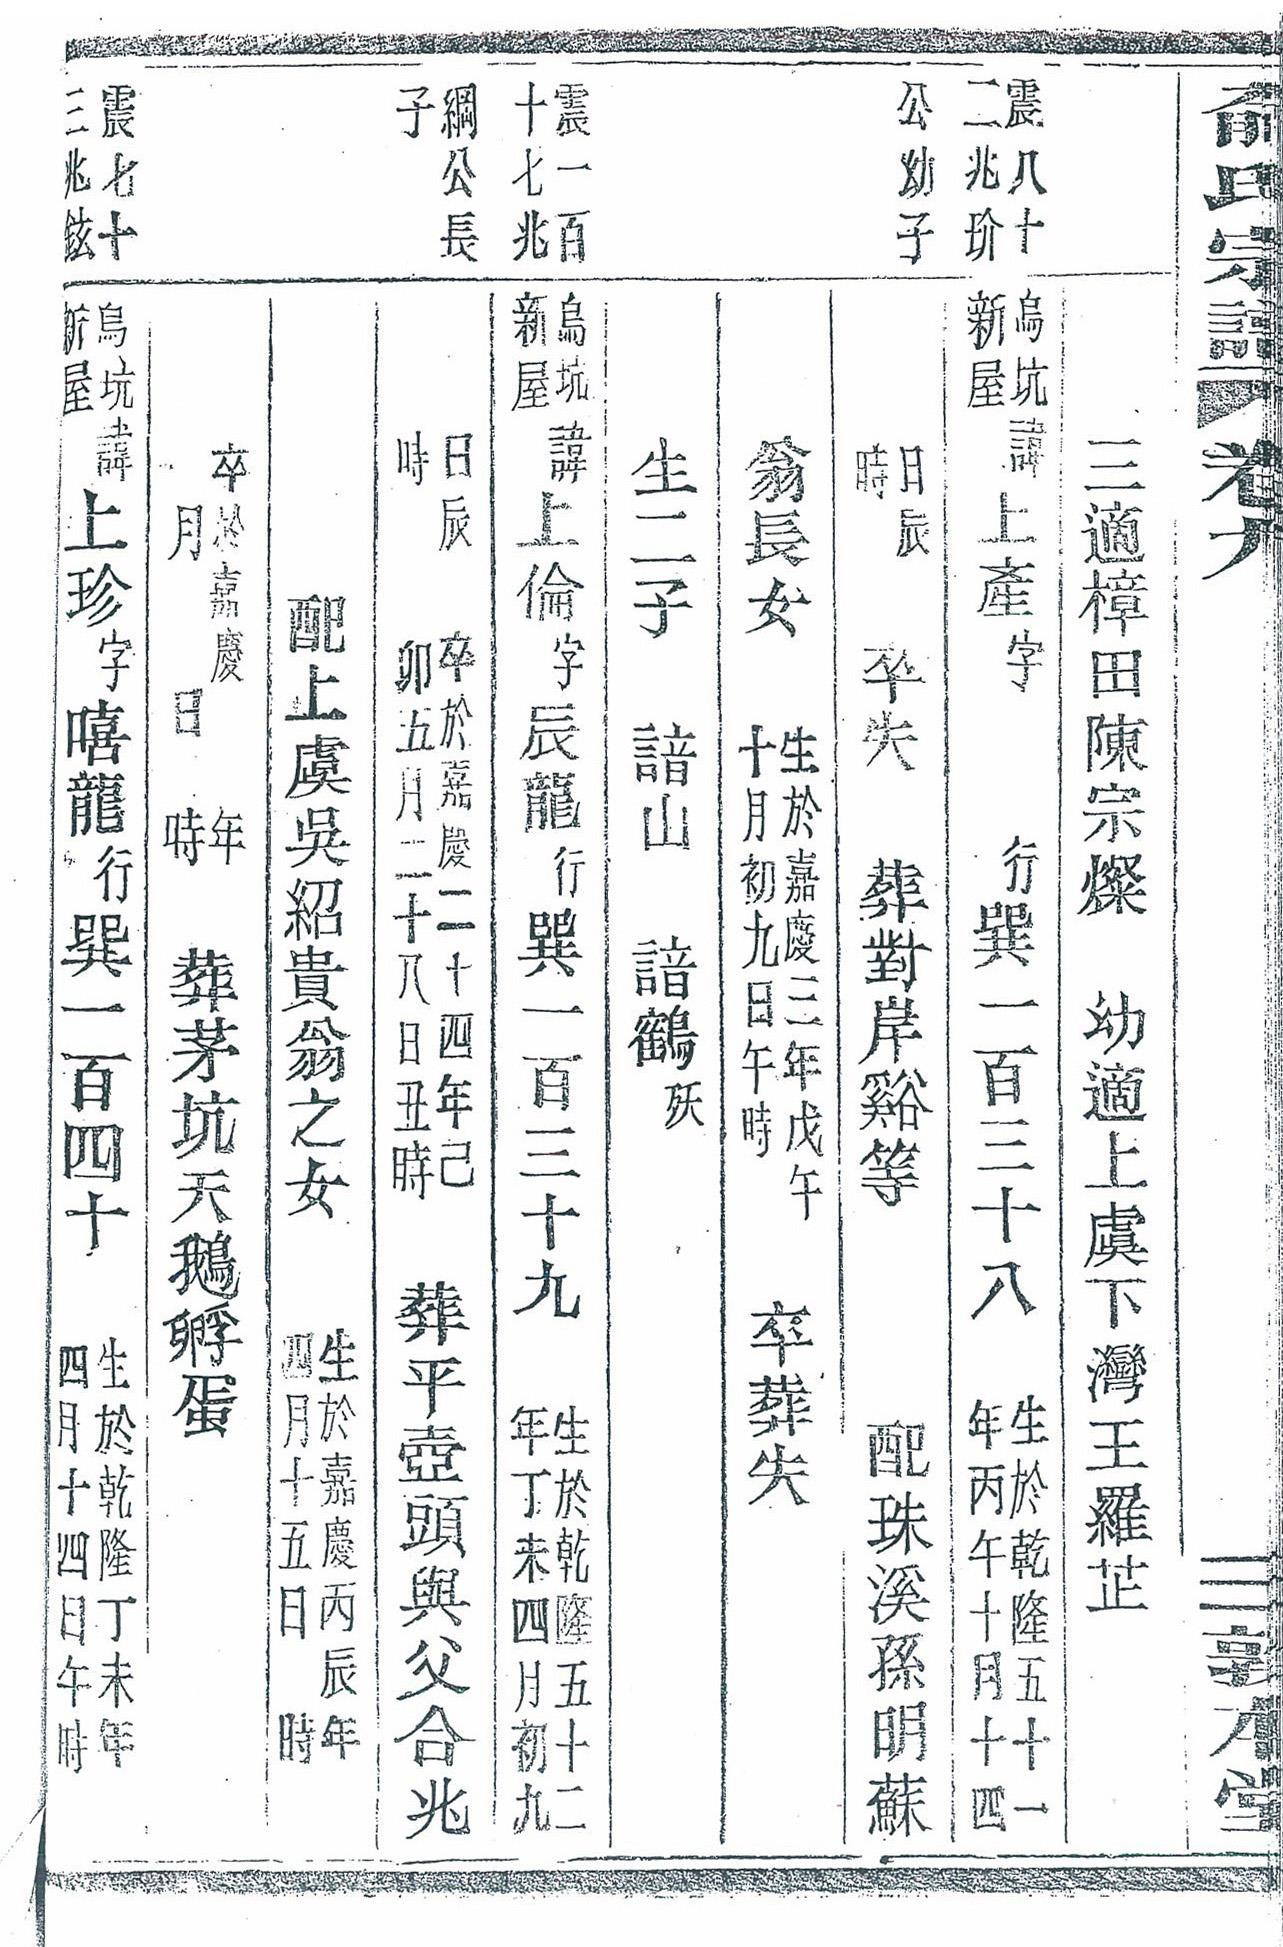 俞氏宗譜 卷六 三 敦本堂
三適樟田陳宗燦 幼適上虞下灣王羅芷
震八十
二兆玠
公幼子
烏坑
新屋
諱上產字 行巽一百三十八 生於乾隆五十一
年丙午十月十四
日辰
時 卒失 葬對岸谿等 配珠溪孫明蘇
翁長女 生於嘉慶三年戊午
十月初九日午時 卒葬失
生二子 諳山 諳鶴殀
震一百
十七兆
綱公長
子
烏坑
新屋
諱上倫字辰龍行巽一百三十九 生於乾隆五十二
年丁未四月初九
日辰
時 卒於嘉慶二十四年己
卯五月二十八日丑時 葬平壺頭與父合兆
配上虞吳紹貴翁之女 生於嘉慶丙辰年
四月十五日 時
卒於嘉慶 年
月 日 時 葬茅坑天鵝孵蛋
震七十
三兆鉉
烏坑
新屋
諱上珍字嘻龍行巽一百四十 生於乾隆丁未年
四月十四日午時